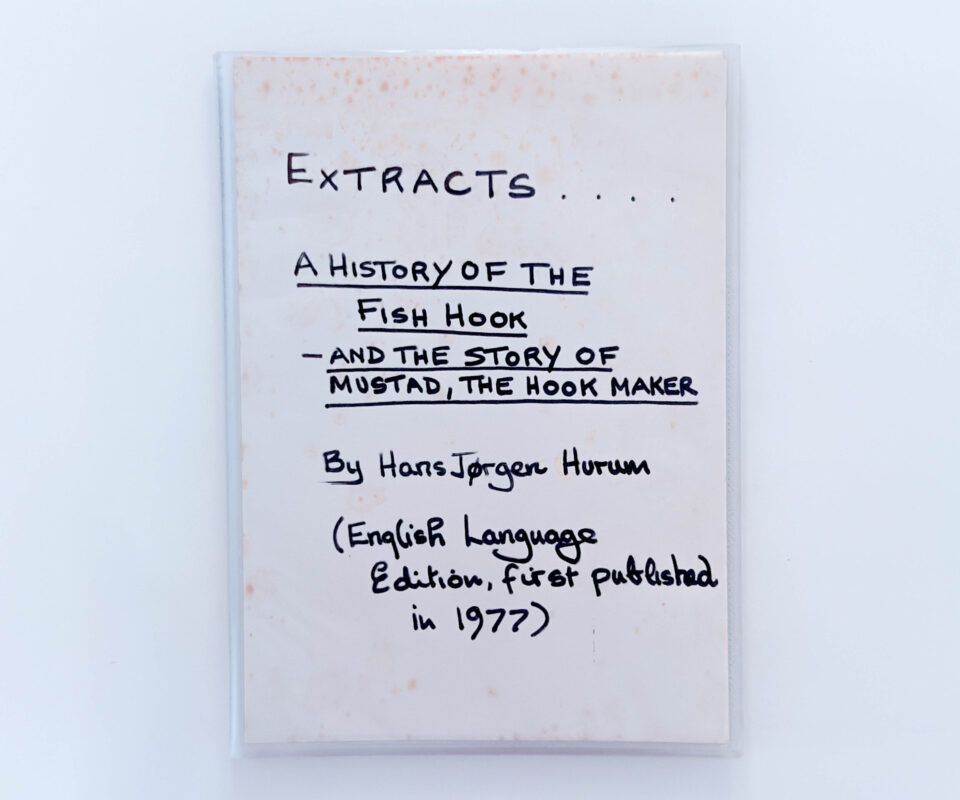 EXTRACTS . . . .
A HISTORY OF THE
FISH HOOK
— AND THE STORY OF
MUSTAD, THE HOOK MAKER
By Hans Jørgen Hurum
(English Language
Edition, first published
in 1977)